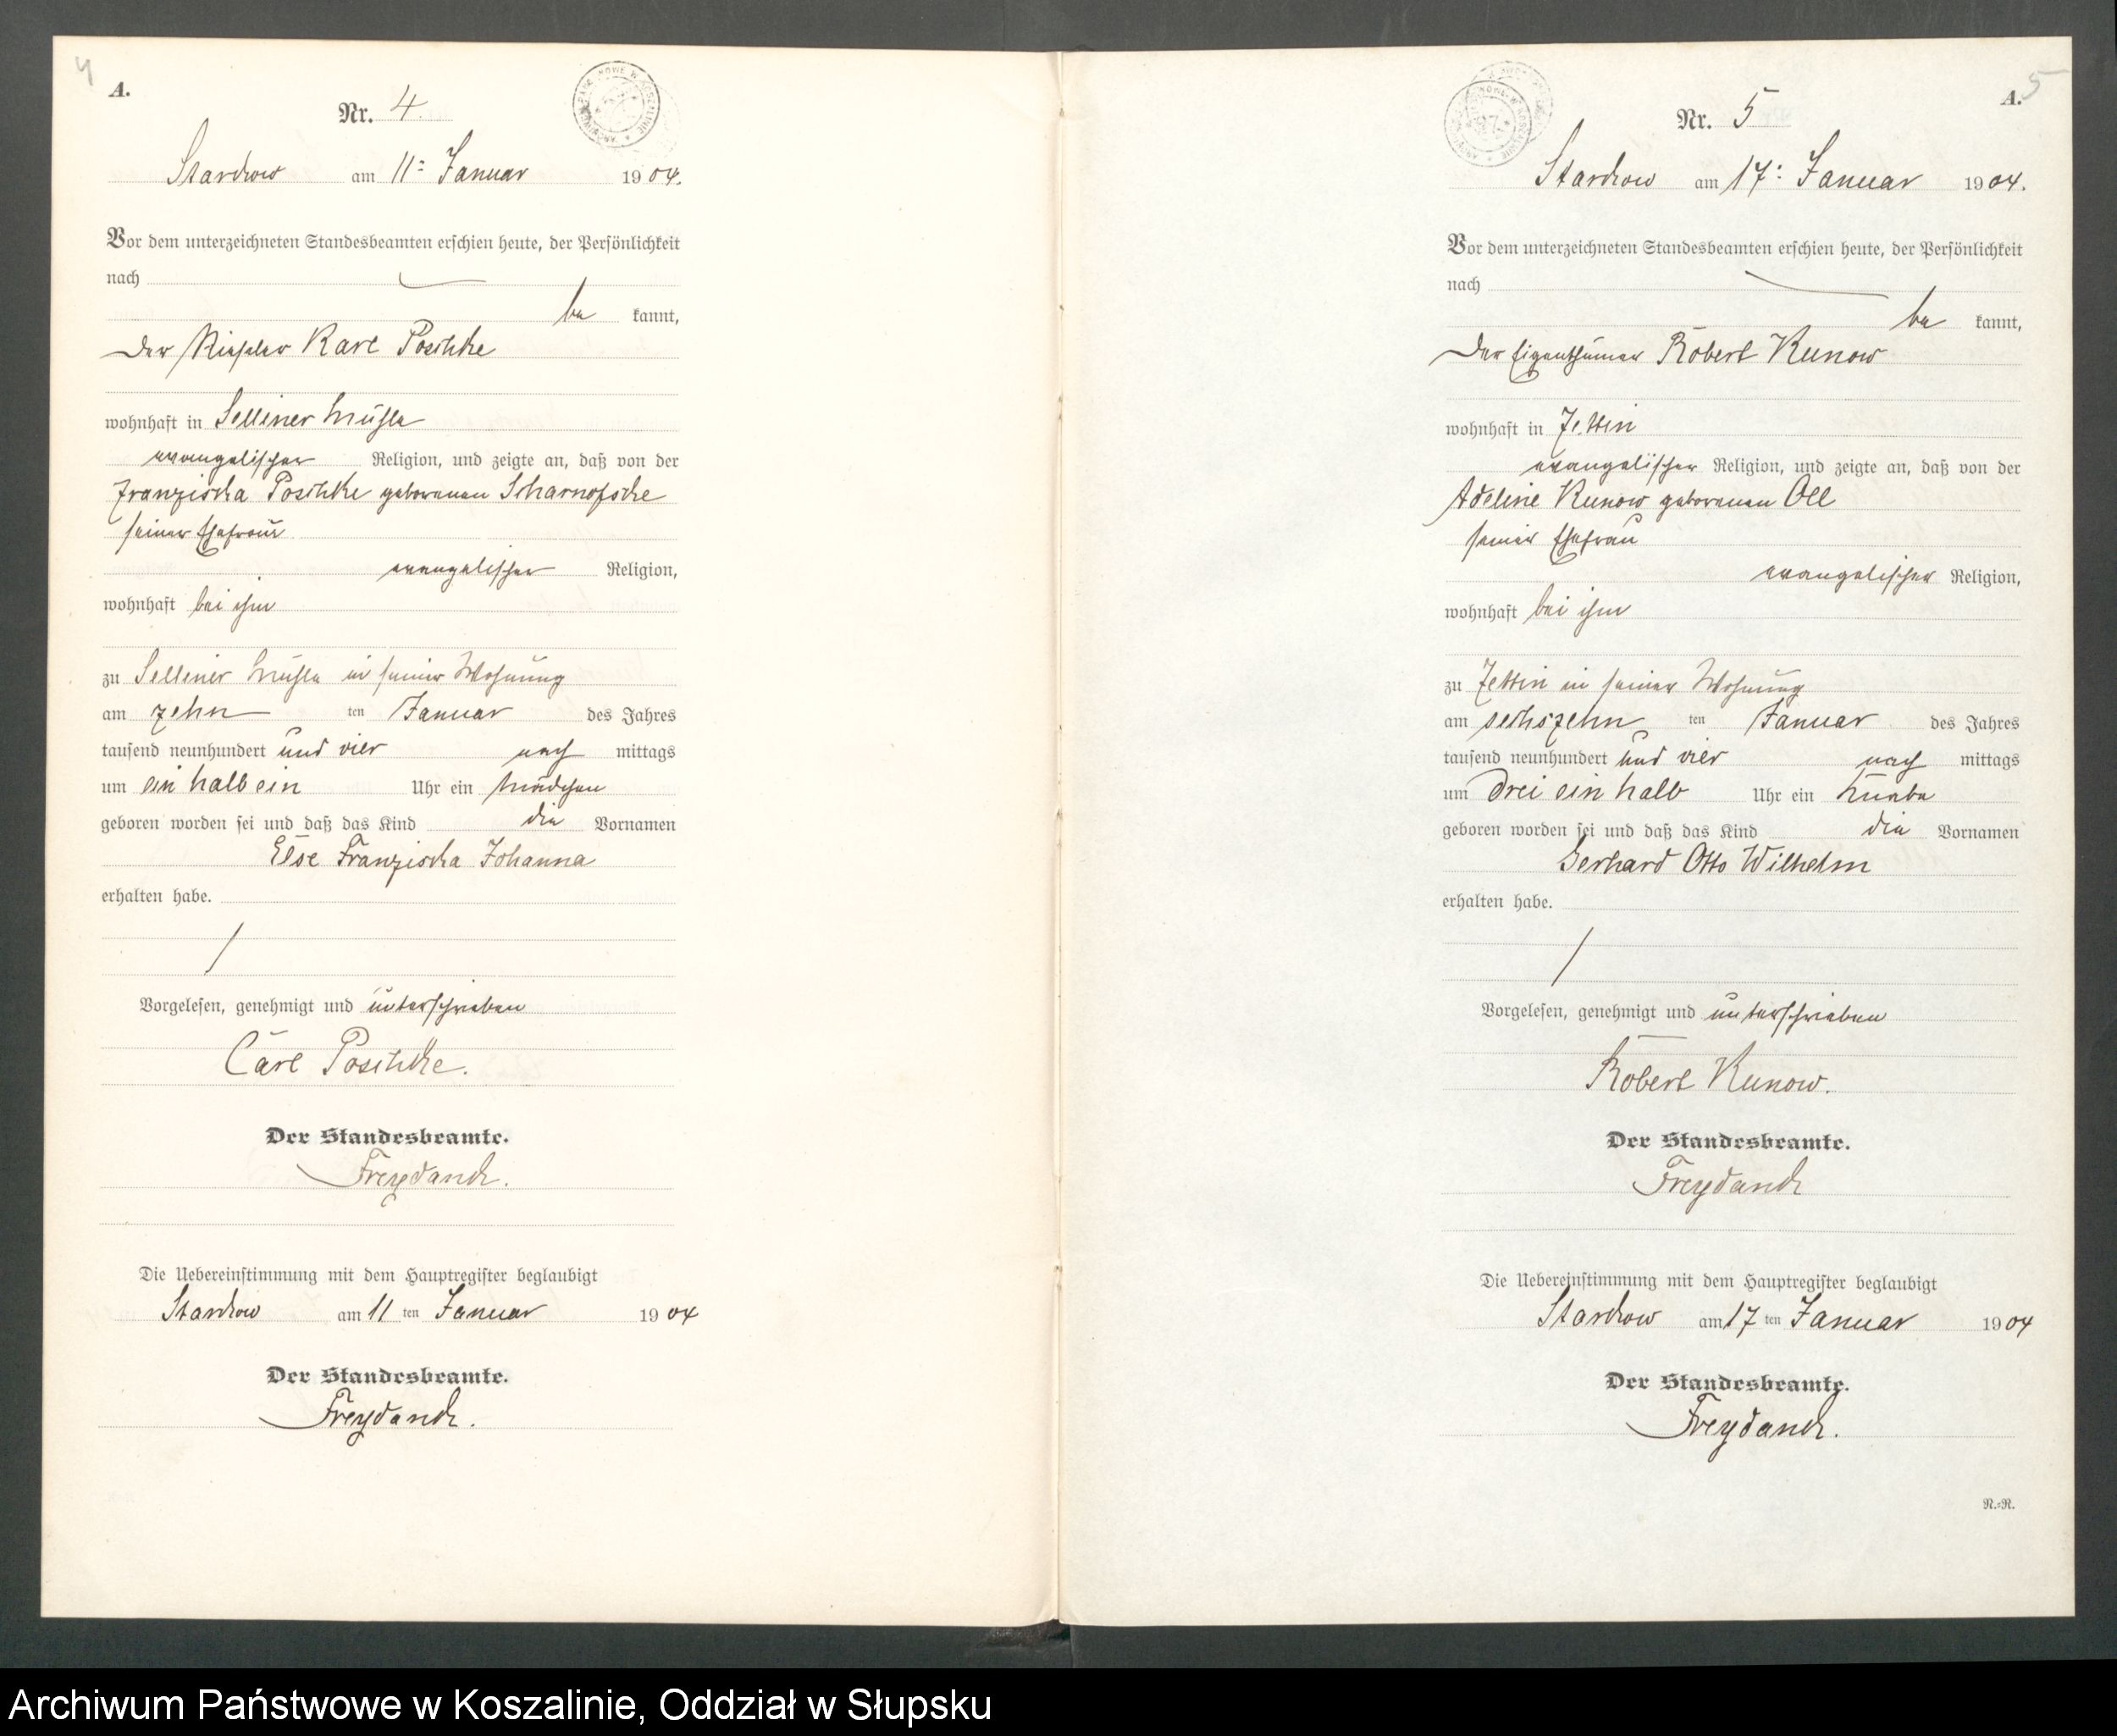 4
A.
Nr. 4.
Starckow am 11= Januar 1904.
Vor dem unterzeichneten Standesbeamten erschien heute, der Persönlichkeit
nach
be kannt,
der Karl Poschke
wohnhaft in Selliner Mühle
evangelischer Religion, und zeigte an, daß von der
Franziska Poschke geborenen
seiner Ehefrau
evangelischer Religion,
wohnhaft bei ihm
zu Selliner Mühle in seiner Wohnung
am zehn ten Januar des Jahres
tausend neunhundert und vier nach mittags
um ein halb ein Uhr ein Mädchen
geboren worden sei und daß das Kind die Vornamen
Else Franziska Johanna
erhalten habe.
Vorgelesen, genehmigt und unterschrieben
Carl Poschke.
Der Standesbeamte.
Freydanck.
Die Uebereinstimmung mit dem Hauptregister beglaubigt
Starckow am 11 ten Januar 1904
Der Standesbeamte.
Freydanck.
5
A.
Nr. 5
Starckow am 17: Januar 1904.
Vor dem unterzeichneten Standesbeamten erschien heute, der Persönlichkeit
nach
be kannt,
der Eigenthümer Robert Kunow
wohnhaft in Zettin
evangelischer Religion, und zeigte an, daß von der
Adeline Kunow geborenen Oll
seiner Ehefrau
evangelischer Religion,
wohnhaft bei ihm
zu Zettin in seiner Wohnung
am sechszehn ten Januar des Jahres
tausend neunhundert und vier nach mittags
um drei ein halb Uhr ein Knabe
geboren worden sei und daß das Kind die Vornamen
Gerhard Otto Wilhelm
erhalten habe.
Vorgelesen, genehmigt und unterschrieben
Robert Kunow.
Der Standesbeamte.
Freydanck
Die Uebereinstimmung mit dem Hauptregister beglaubigt
Starckow am 17 ten Januar 1904
Der Standesbeamte.
Freydanck.
N.=R.
Archiwum Państwowe w Koszalinie, Oddział w Słupsku